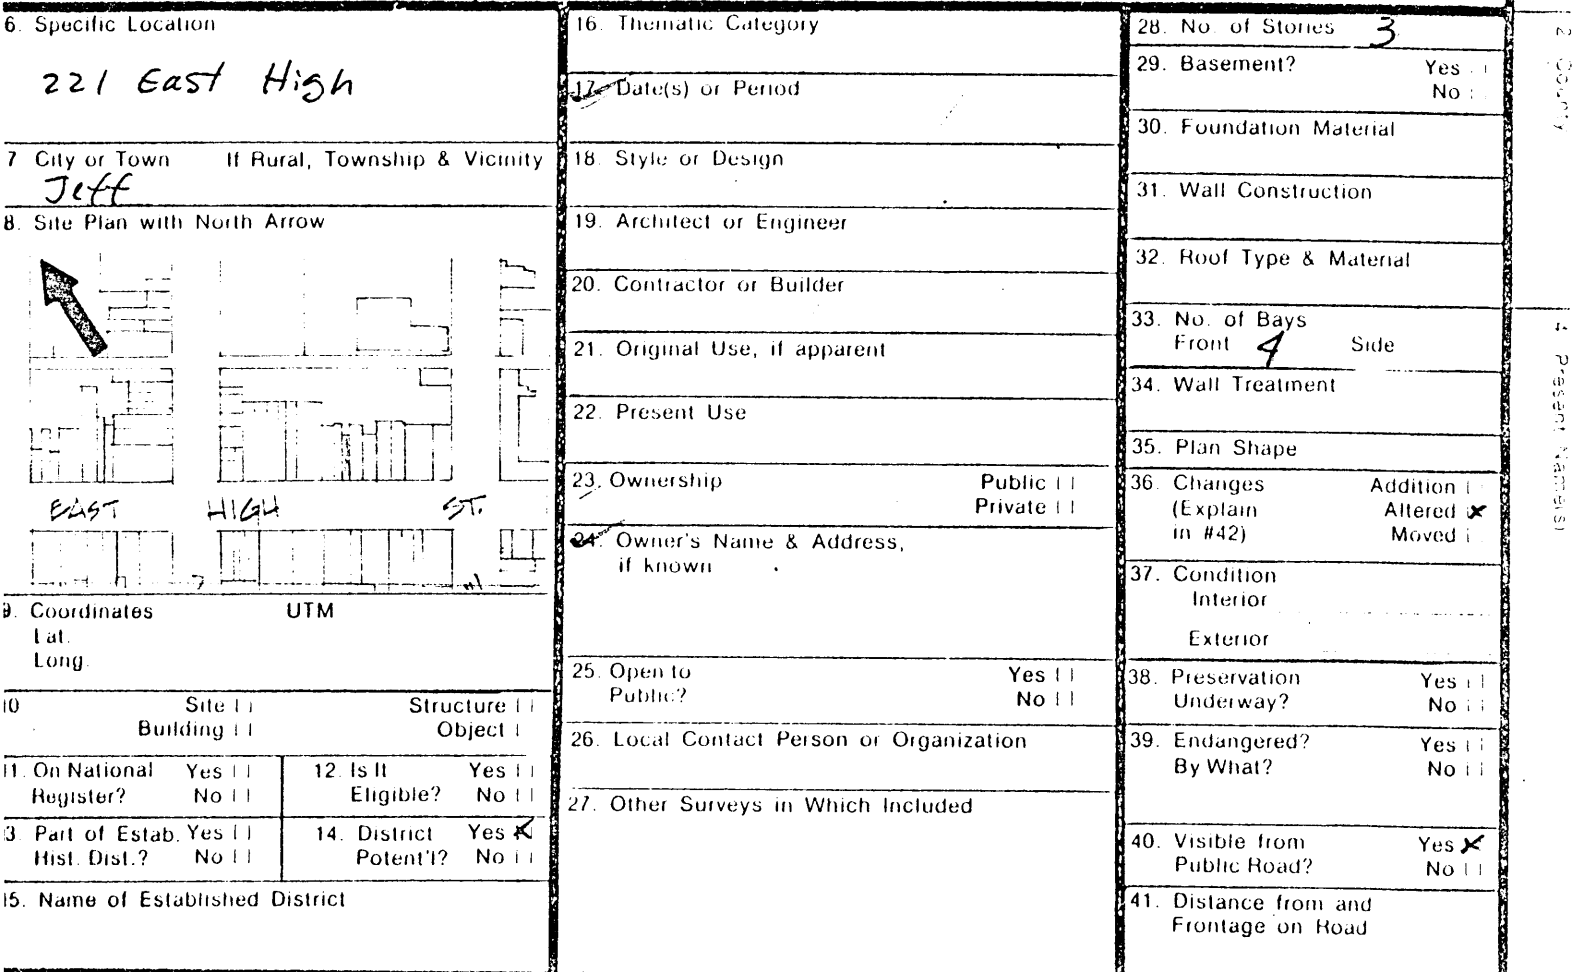 6. Specific Location
221 East High
7 City or Town If Rural, Township & Vicinity
Jeff
8. Site Plan with North Arrow
EAST HIGH ST.
9. Coordinates UTM
Lat.
Long.
10 Site Structure
Building Object
11. On National Register? Yes No
12. Is It Eligible? Yes No
13. Part of Estab. Hist. Dist.? Yes No
14. District Potent'l? Yes X No
15. Name of Established District
16. Thematic Category
17. Date(s) or Period
18. Style or Design
19. Architect or Engineer
20. Contractor or Builder
21. Original Use, if apparent
22. Present Use
23. Ownership Public
Private
24. Owner's Name & Address,
if known
25. Open to Yes
Public? No
26. Local Contact Person or Organization
27. Other Surveys in Which Included
28. No. of Stories 3
29. Basement? Yes
No
30. Foundation Material
31. Wall Construction
32. Roof Type & Material
33. No. of Bays
Front 4 Side
34. Wall Treatment
35. Plan Shape
36. Changes Addition
(Explain Altered X
in #42) Moved
37. Condition
Interior
Exterior
38. Preservation Yes
Underway? No
39. Endangered? Yes
By What? No
40. Visible from Yes X
Public Road? No
41. Distance from and
Frontage on Road
2 County
4 Present Name(s)